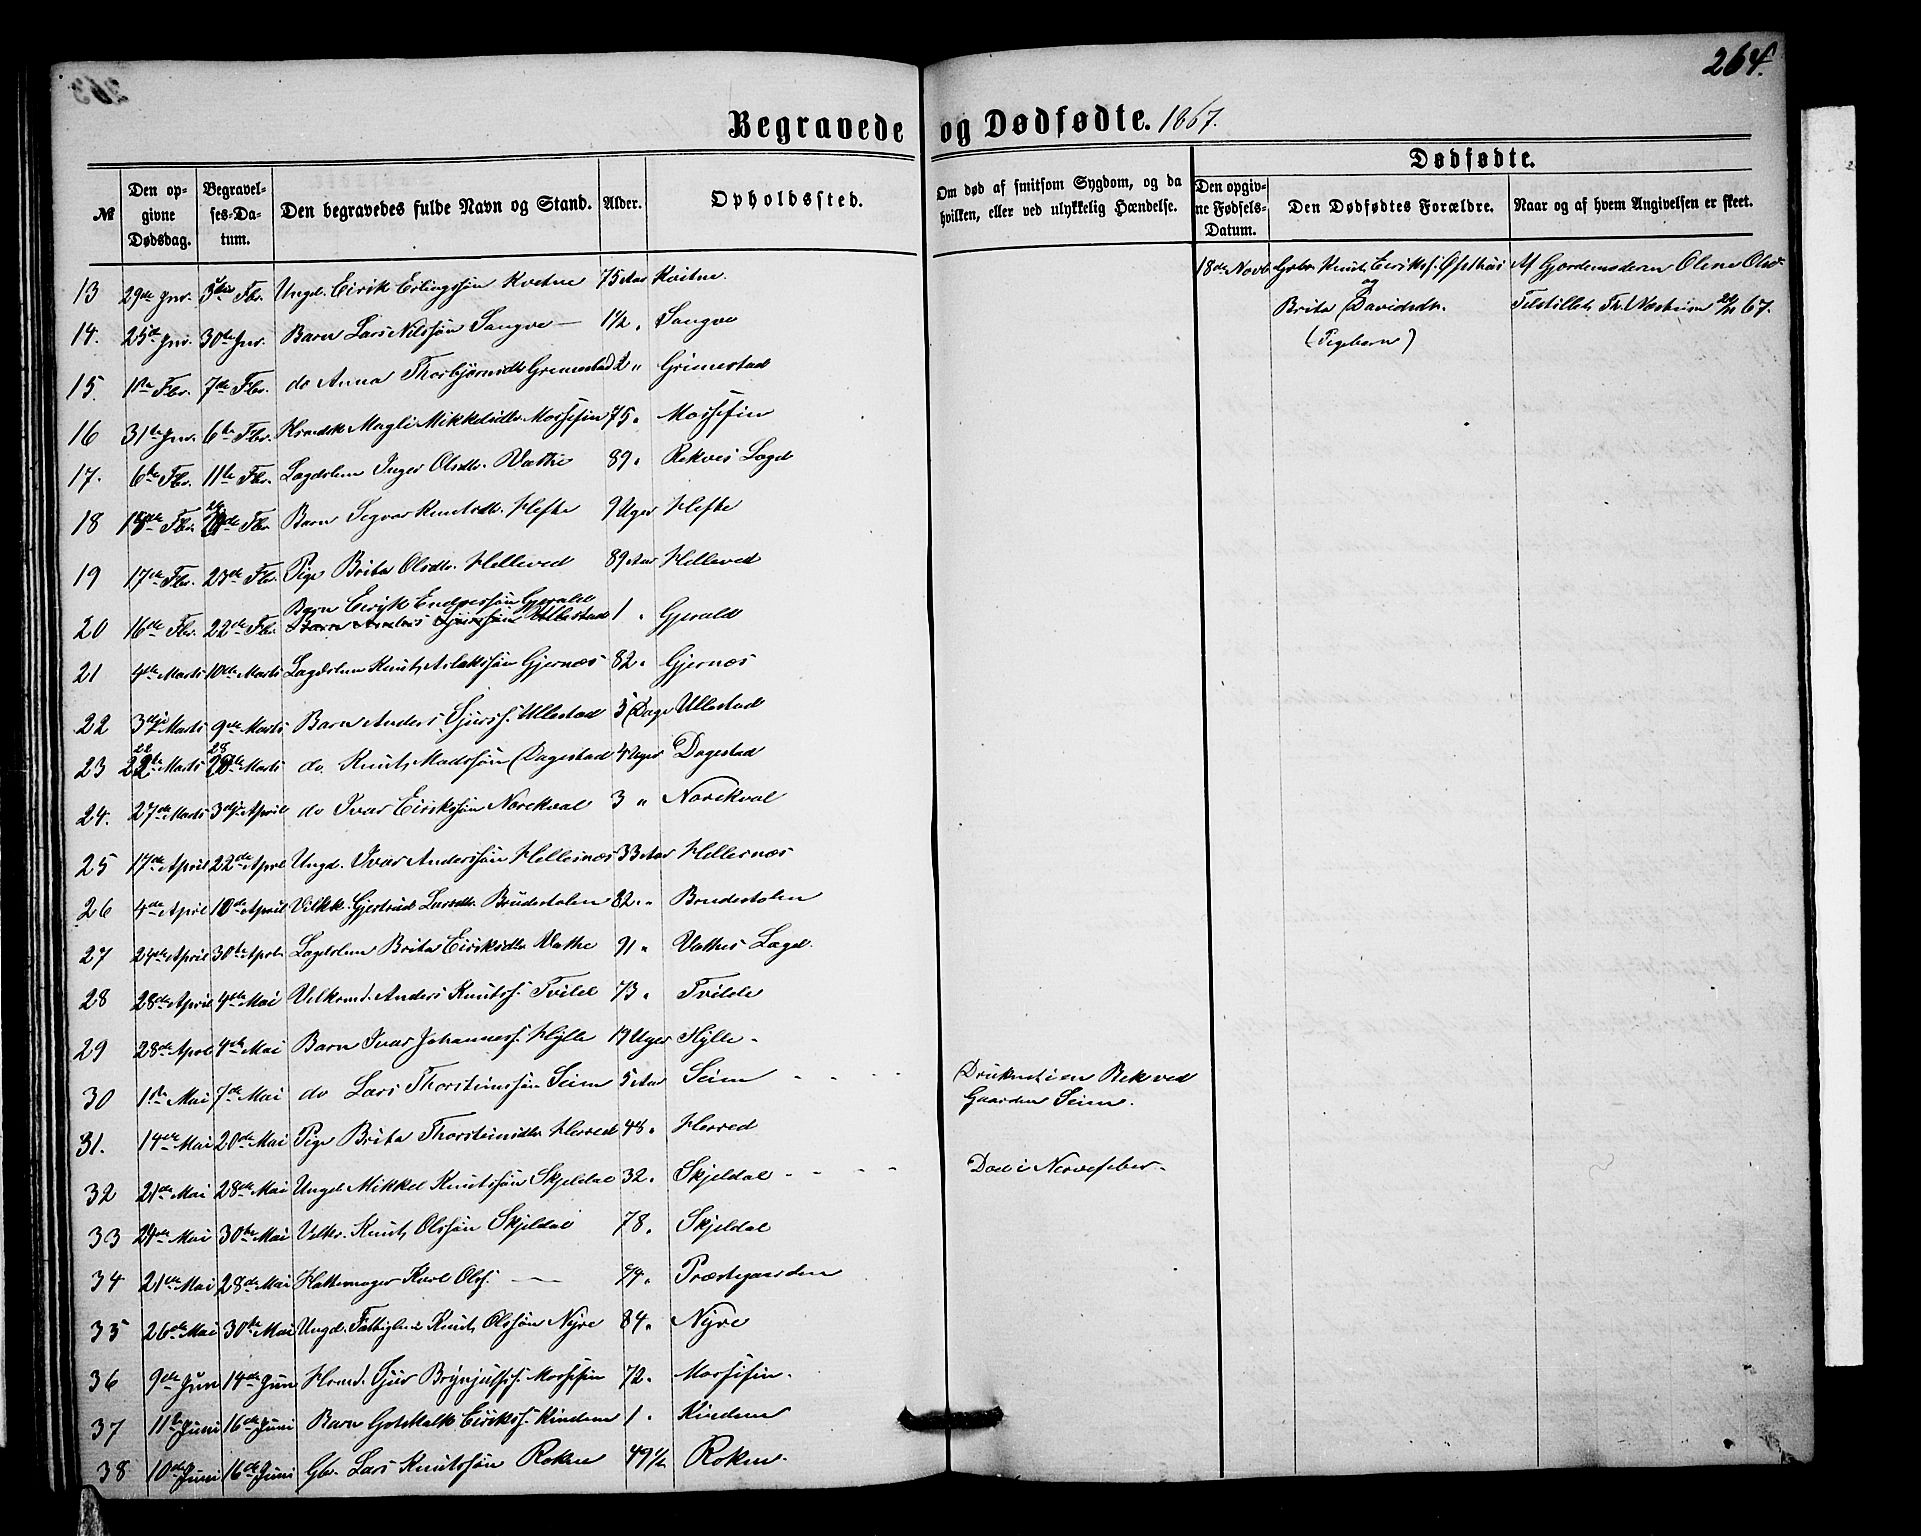 264.
Begravede og Dødfødte. 1867.
Dødfødte.
№ Den opgivne Dødsdag. Begravelses-Datum. Den begravedes fulde Navn og Stand. Alder. Opholdssted. Om død af smitsom Sygdom, og da hvilken, eller ved ulykkelig Hændelse. Den opgivne Fødsels-Datum. Den Dødfødtes Forældre. Naar og af hvem Angivelsen er skeet.
13 29de Jnr. 3die Fbr. Ungd. Eirik Erlingssøn Kvitne 75 Aar Kvitne. 18de Novb. Gbr. Knut Eiriks. Af Gjordemoderen Olena
og
Brita Davidsdtr. 67.
(Pigebarn)
14. 25de Jnr. 30te Jnr. Barn Lars Nilssøn Sangve — 1½ " Sangve
15. 1ste Fbr. 7de Fbr. do Anna Thorbjørnsdtr Grimestad 2 " Grimestad
16 31te Jnr. 6te Fbr. Magli Mikkelsdtr. Mossefin 75 " Mossefin
17. 6te Fbr. 11te Fbr. Lægdslem Inger Olsdtr. Væthe 89 " Rekves Lægd
18 Fbr. Fbr. Barn Knutsdtr. Hefte 9 Uger Hefte
19 17de Fbr. 23de Fbr. Pige Brita Olsdtr. Helleved 89 Aar Helleved
Barn Eirik Endressøn Gjerald
20 16de Fbr. 22de Fbr. Barn Anders Sjurssøn Ullestad 1 " Gjerald
21 4de Marts 10de Marts Lægdslem Knut Aslakssøn Gjernæs 82 " Gjernæs
22 3die Marts 9de Marts Barn Anders Sjurss. Ullestad 5 Dage Ullestad
22 28
23 Marts Marts do. Knut Madssøn Dagestad 4 Uger Dagestad
24. 27de Marts 3die April do Ivar Eirikssøn Norekval 3 " Norekval
25 17de April 22de April Ungd. Ivar Anderssøn Hellesnæs 33 Aar Hellesnæs
26 4de April 10de April Vilkk. Gjertrud Larsdtr. Brudestolen 82 " Brudestolen
27 24de April 30te April Lægdslem Brita Eiriksdtr. Vathe 91 " Vathes Lægd.
28 28de April 4de Mai Vilkmd. Anders Knutss. Tvilde 73 " Tvilde
29 28de April 4de Mai Barn Ivar Johanness. Hylle 19 Uger Hylle -
30 1ste Mai 7de Mai do Lars Thorsteinssøn Seim 5 Aar Seim - - - - Druknet i en Bek ved
Gaarden Seim.
31. 14de Mai 20de Mai Pige Brita Thorsteinsdtr. Herred 48 " Herred
32 21de Mai 28de Mai Ungd. Mikkel Knutssøn Skjeldal 32 " Skjeldal - - - - Død i Nervefeber.
33 24de Mai 30te Mai Knut Olssøn Skjeldal 78 " Skjeldal
34 21de Mai 28de Mai Hattemager Karl Olss. — " Præstegaarden
35 26de Mai 30te Mai Ungd. Knut Olssøn Nyre 84 " Nyre
36 9de Jun 14de Jun Sjur Brynjulfss. Mossefin 72 " Mossefin.
37 11te Juni 16de Juni Barn Gotskalk Eirikss. Kindem 1 " Kindem
38 10de Juni 16de Juni Gbr. Lars Knutssøn Rokne 49½ Rokne.